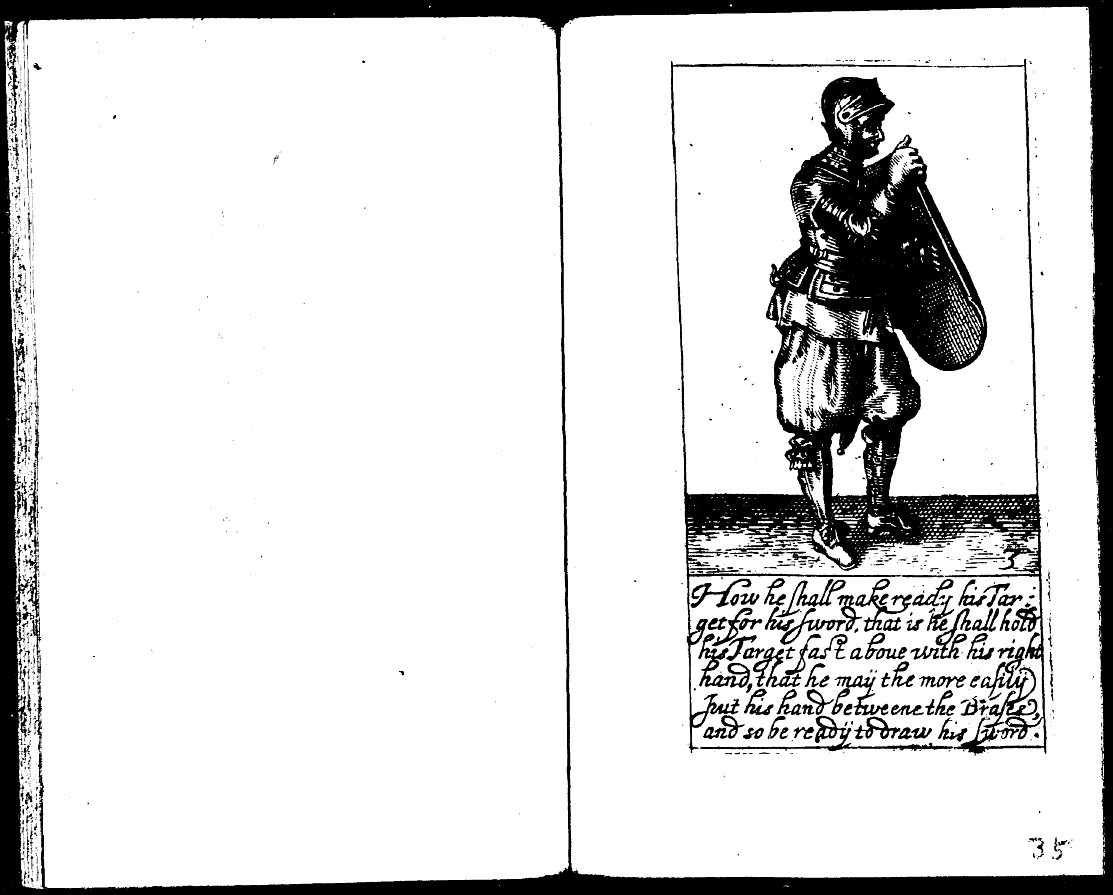 3
How he shall make ready his Tar:
get for his sword, that is he shall hold
his Target fast aboue with his right
hand, that he maÿ the more easilÿ
put his hand betweene the Brases,
and so be readÿ to draw his sword.
35